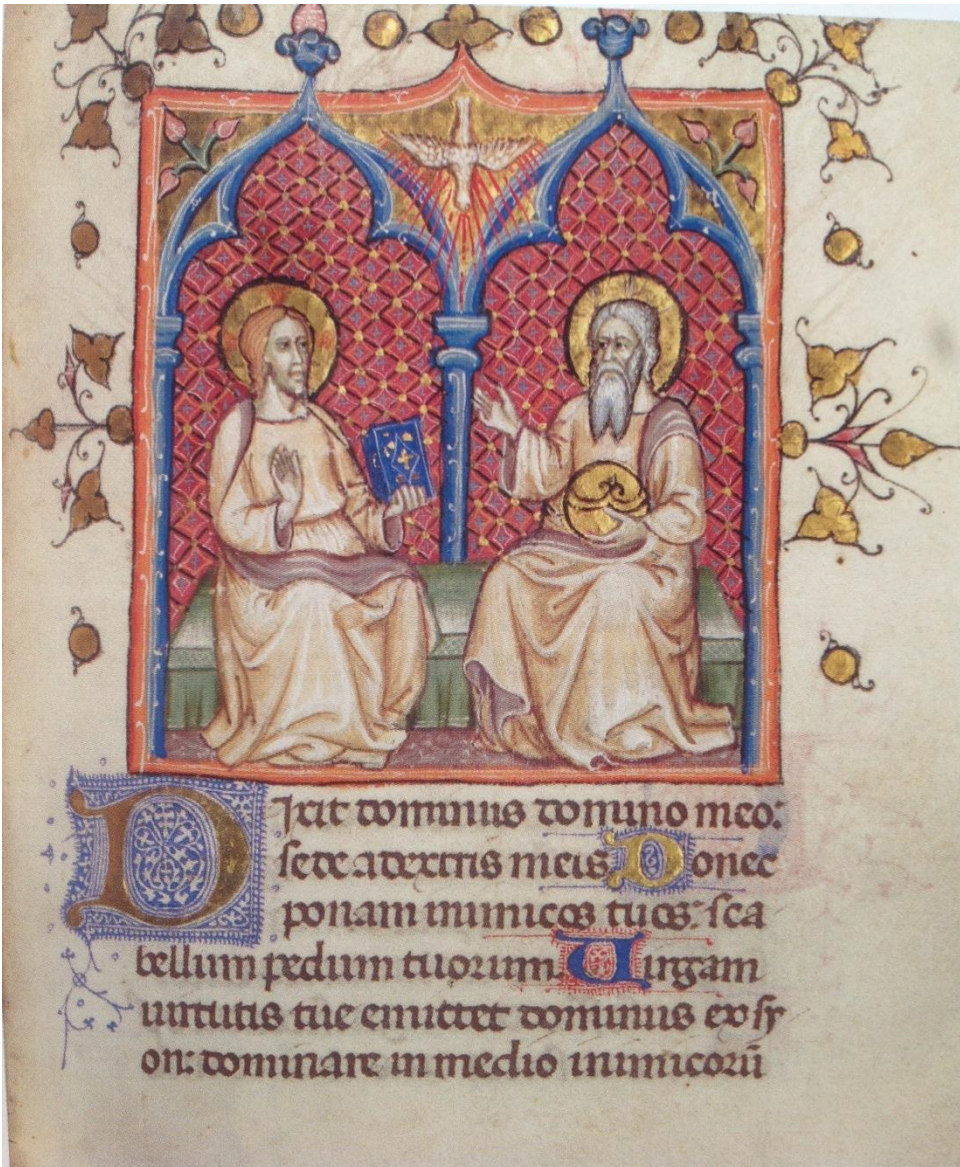 Dixit dominus domino meo:
sede a dextris meis Donec
ponam inimicos tuos: sca
bellum pedum tuorum Uirgam
uirtutis tue emittet dominus ex sy
on: dominare in medio inimicorū